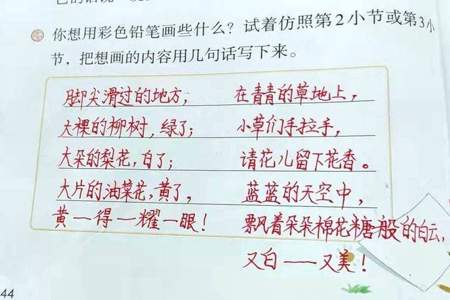 你想用彩色铅笔画些什么?试着仿照第2小节或第3小
节,把想画的内容用几句话写下来。
脚尖滑过的地方;
大裸的柳树,绿了;
大朵的梨花,白了;
大片的油菜花,黄了,
黄一得一耀一眼!
在青青的草地上,
小草们手拉手,
请花儿留下花香。
蓝蓝的天空中,
飘着朵朵棉花糖般的白云,
又白——又美!
44